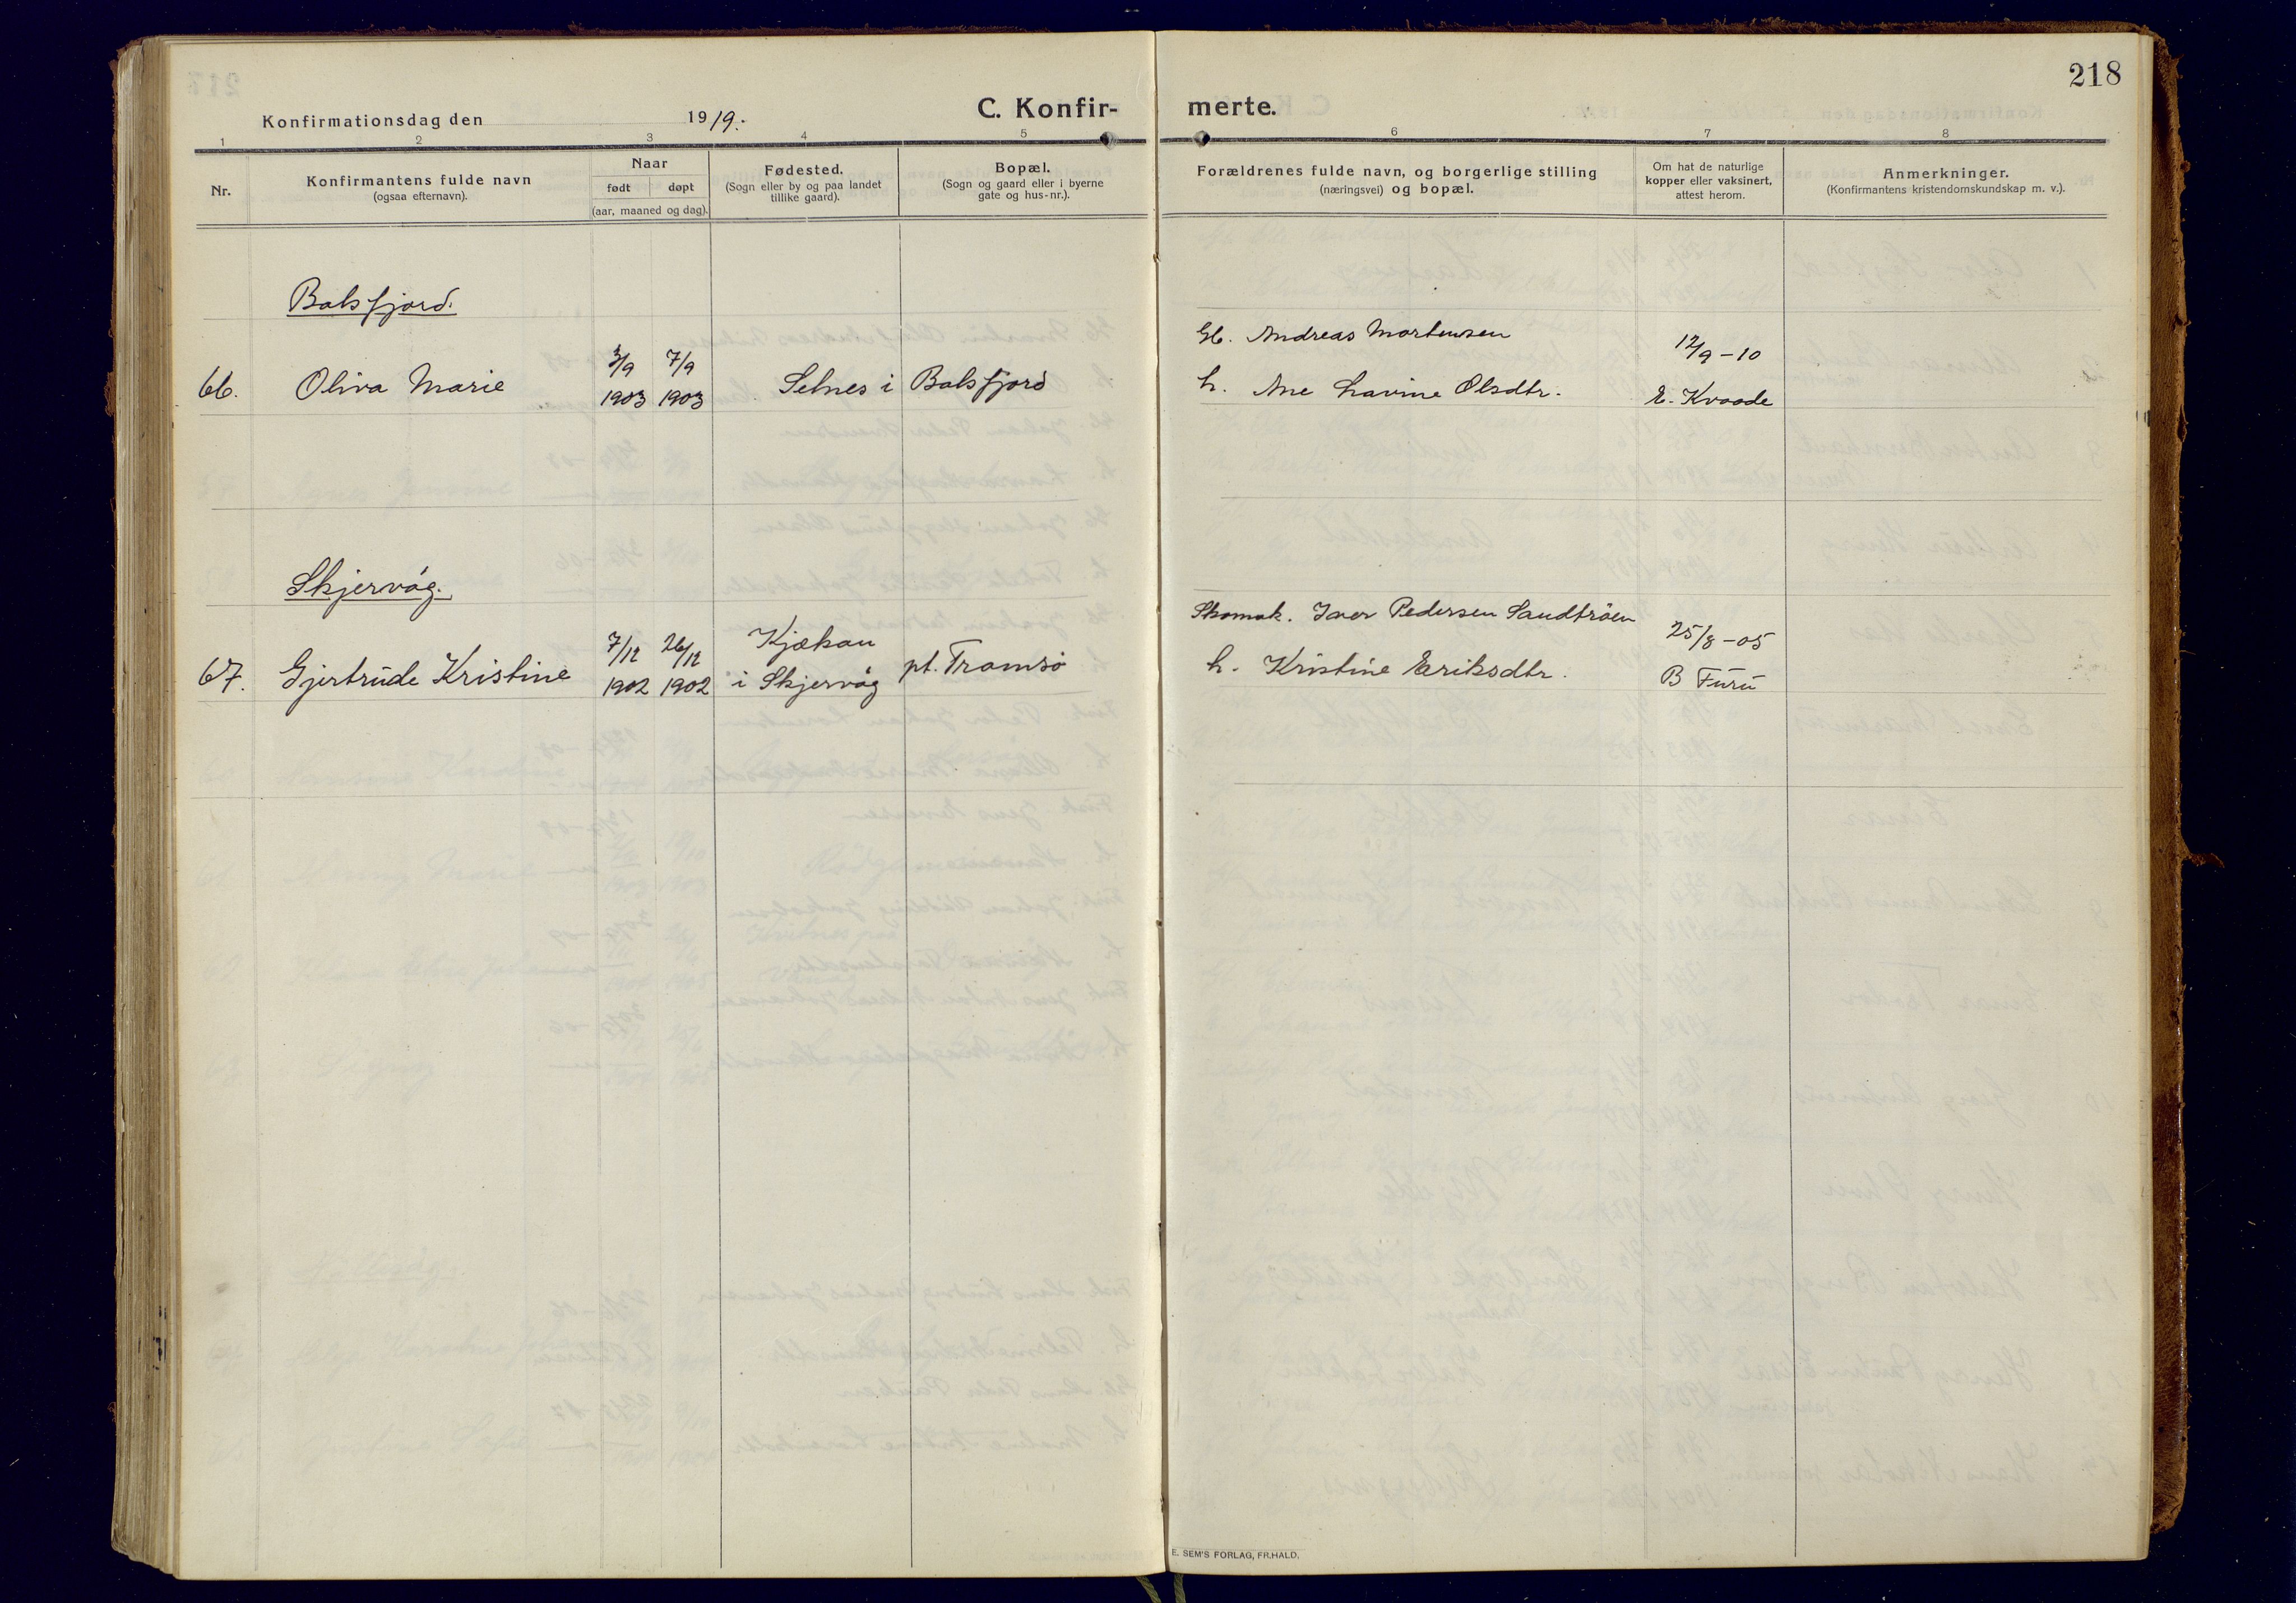 218
Konfirmationsdag den 1919.
C. Konfir- merte.
1 2 3 4 5 6 7 8
Nr.
Konfirmantens fulde navn
(ogsaa efternavn).
Naar
født døpt
(aar, maaned og dag).
Fødested.
(Sogn eller by og paa landet
tillike gaard).
Bopæl.
(Sogn og gaard eller i byerne
gate og hus-nr.).
Forældrenes fulde navn, og borgerlige stilling
(næringsvei) og bopæl.
Om hat de naturlige
kopper eller vaksinert,
attest herom.
Anmerkninger.
(Konfirmantens kristendomskundskap m. v.).
Balsfjord.
3/9 7/9 Gb. Andreas Mortensen 12/9-10
66. Oliva Marie 1903 1903 Selnes i Balsfjord h. Ane Lavine Olsdtr. E. Kvaade
Skjervåg.
7/12 26/12 Kjækan Skomak. Iver Pedersen Sandtrøen 25/8-05
67. Gjertrude Kristine 1902 1902 i Skjervåg pt. Tromsø h. Kristine Eriksdtr. B Furu
E. SEM'S FORLAG, FR.HALD.